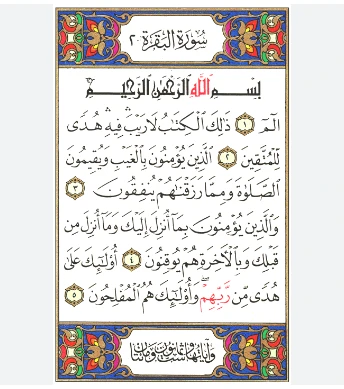 سُورَةُ الْبَقَرَةِ ٢
بِسْمِ اللَّهِ الرَّحْمَٰنِ الرَّحِيمِ
الٓمٓ ﴿١﴾ ذَٰلِكَ الْكِتَابُ لَا رَيْبَ ۛ فِيهِ ۛ هُدًى
لِّلْمُتَّقِينَ ﴿٢﴾ الَّذِينَ يُؤْمِنُونَ بِالْغَيْبِ وَيُقِيمُونَ
الصَّلَاةَ وَمِمَّا رَزَقْنَاهُمْ يُنفِقُونَ ﴿٣﴾
وَالَّذِينَ يُؤْمِنُونَ بِمَا أُنزِلَ إِلَيْكَ وَمَا أُنزِلَ مِن
قَبْلِكَ وَبِالْآخِرَةِ هُمْ يُوقِنُونَ ﴿٤﴾ أُولَٰئِكَ عَلَىٰ
هُدًى مِّن رَّبِّهِمْ ۖ وَأُولَٰئِكَ هُمُ الْمُفْلِحُونَ ﴿٥﴾
وَآيَاتُهَا سِتٌّ وَثَمَانُونَ وَمِائَتَانِ